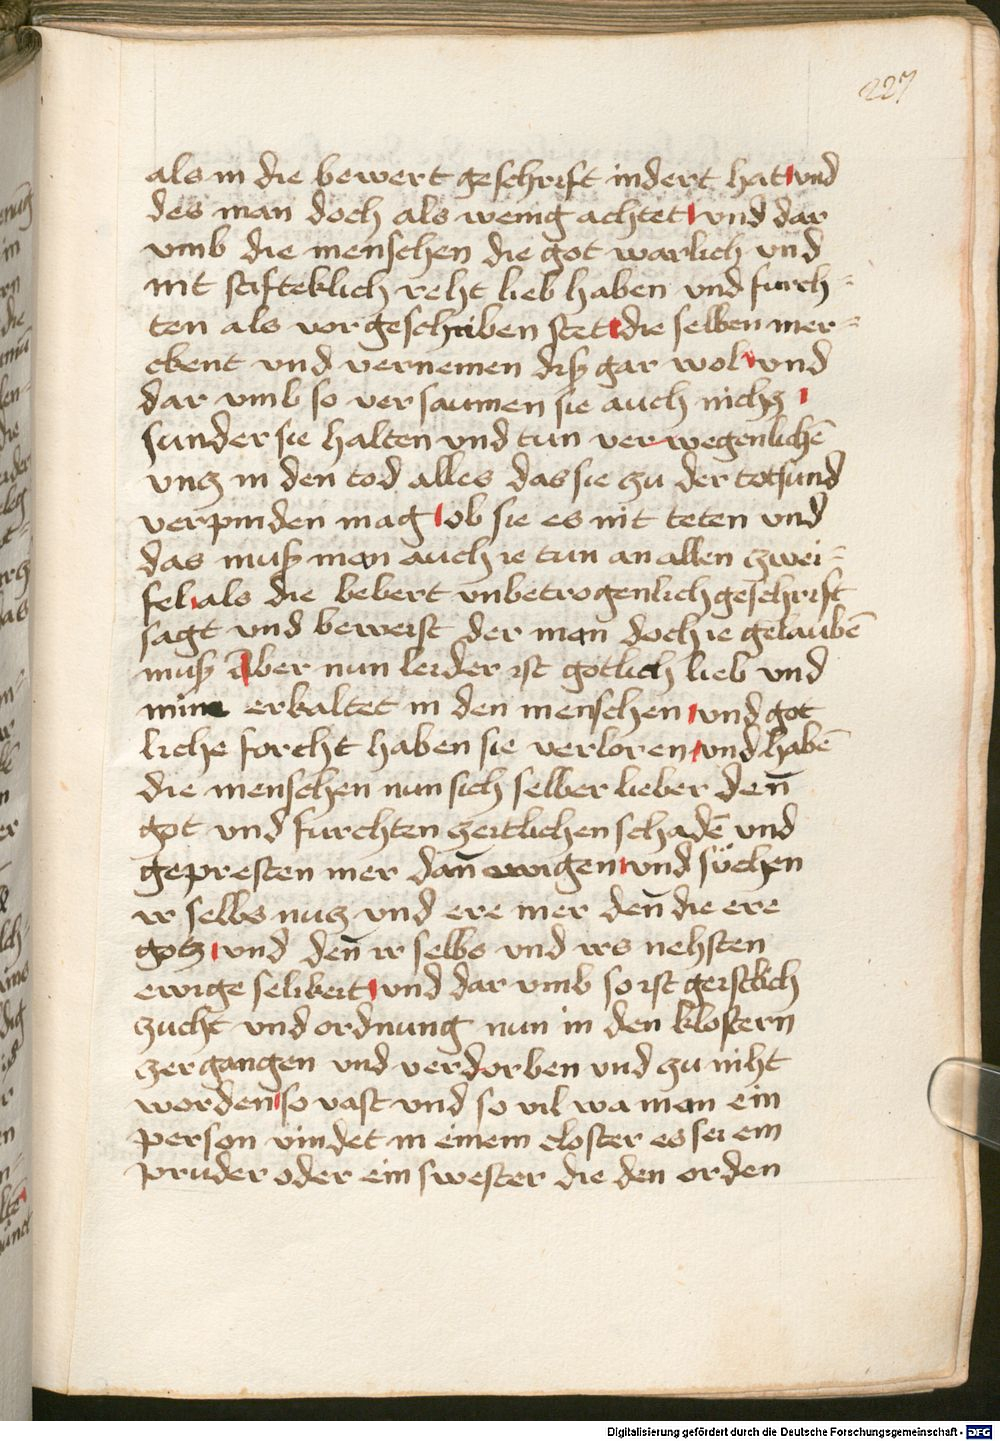 227
als in die bewert geschrift indert hat und
des man doch als wenig achtet und dar
vmb die menschen die got warlich vnd
nit stifteklich reht lieb haben vnd furch-
ten als vor geschriben stet die selben mer-
ckent vnd vernemen disz gar wol vnd
dar vmb so versaumen sie auch nichz
sunder sie halten vnd tun verwegenlichē
vnz in den tod alles das sie zu der totsund
verpinden mag ob sie es nit teten vnd
das musz man auch ie tun an allen zwei-
fel als die bebert vnbetrogenlich geschrift
sagt vnd beweist der man doch ie gelaubē
musz Aber nun leider ist gotlich lieb vnd
mine erkaltet in den menschen vnd got
liche forcht haben sie verloren vnd habē
die menschen nun sich selber lieber den̄
got vnd furchten zeitlichen schadē vnd
gepresten mer dan̄ ewigen vnd süchen
ir selbs nuz vnd ere mer den̄ die ere
gotz vnd den̄ ir selbs vnd irs nehsten
ewige selikeit vnd dar vmb so ist geistlich
zucht vnd ordnung nun in den klostern
zergangen vnd verdorben vnd zu niht
worden so vast vnd so vil wa man ein
person vindet in einem closter es sei ein
pruder oder ein swester die den orden
Digitalisierung gefördert durch die Deutsche Forschungsgemeinschaft - DFG